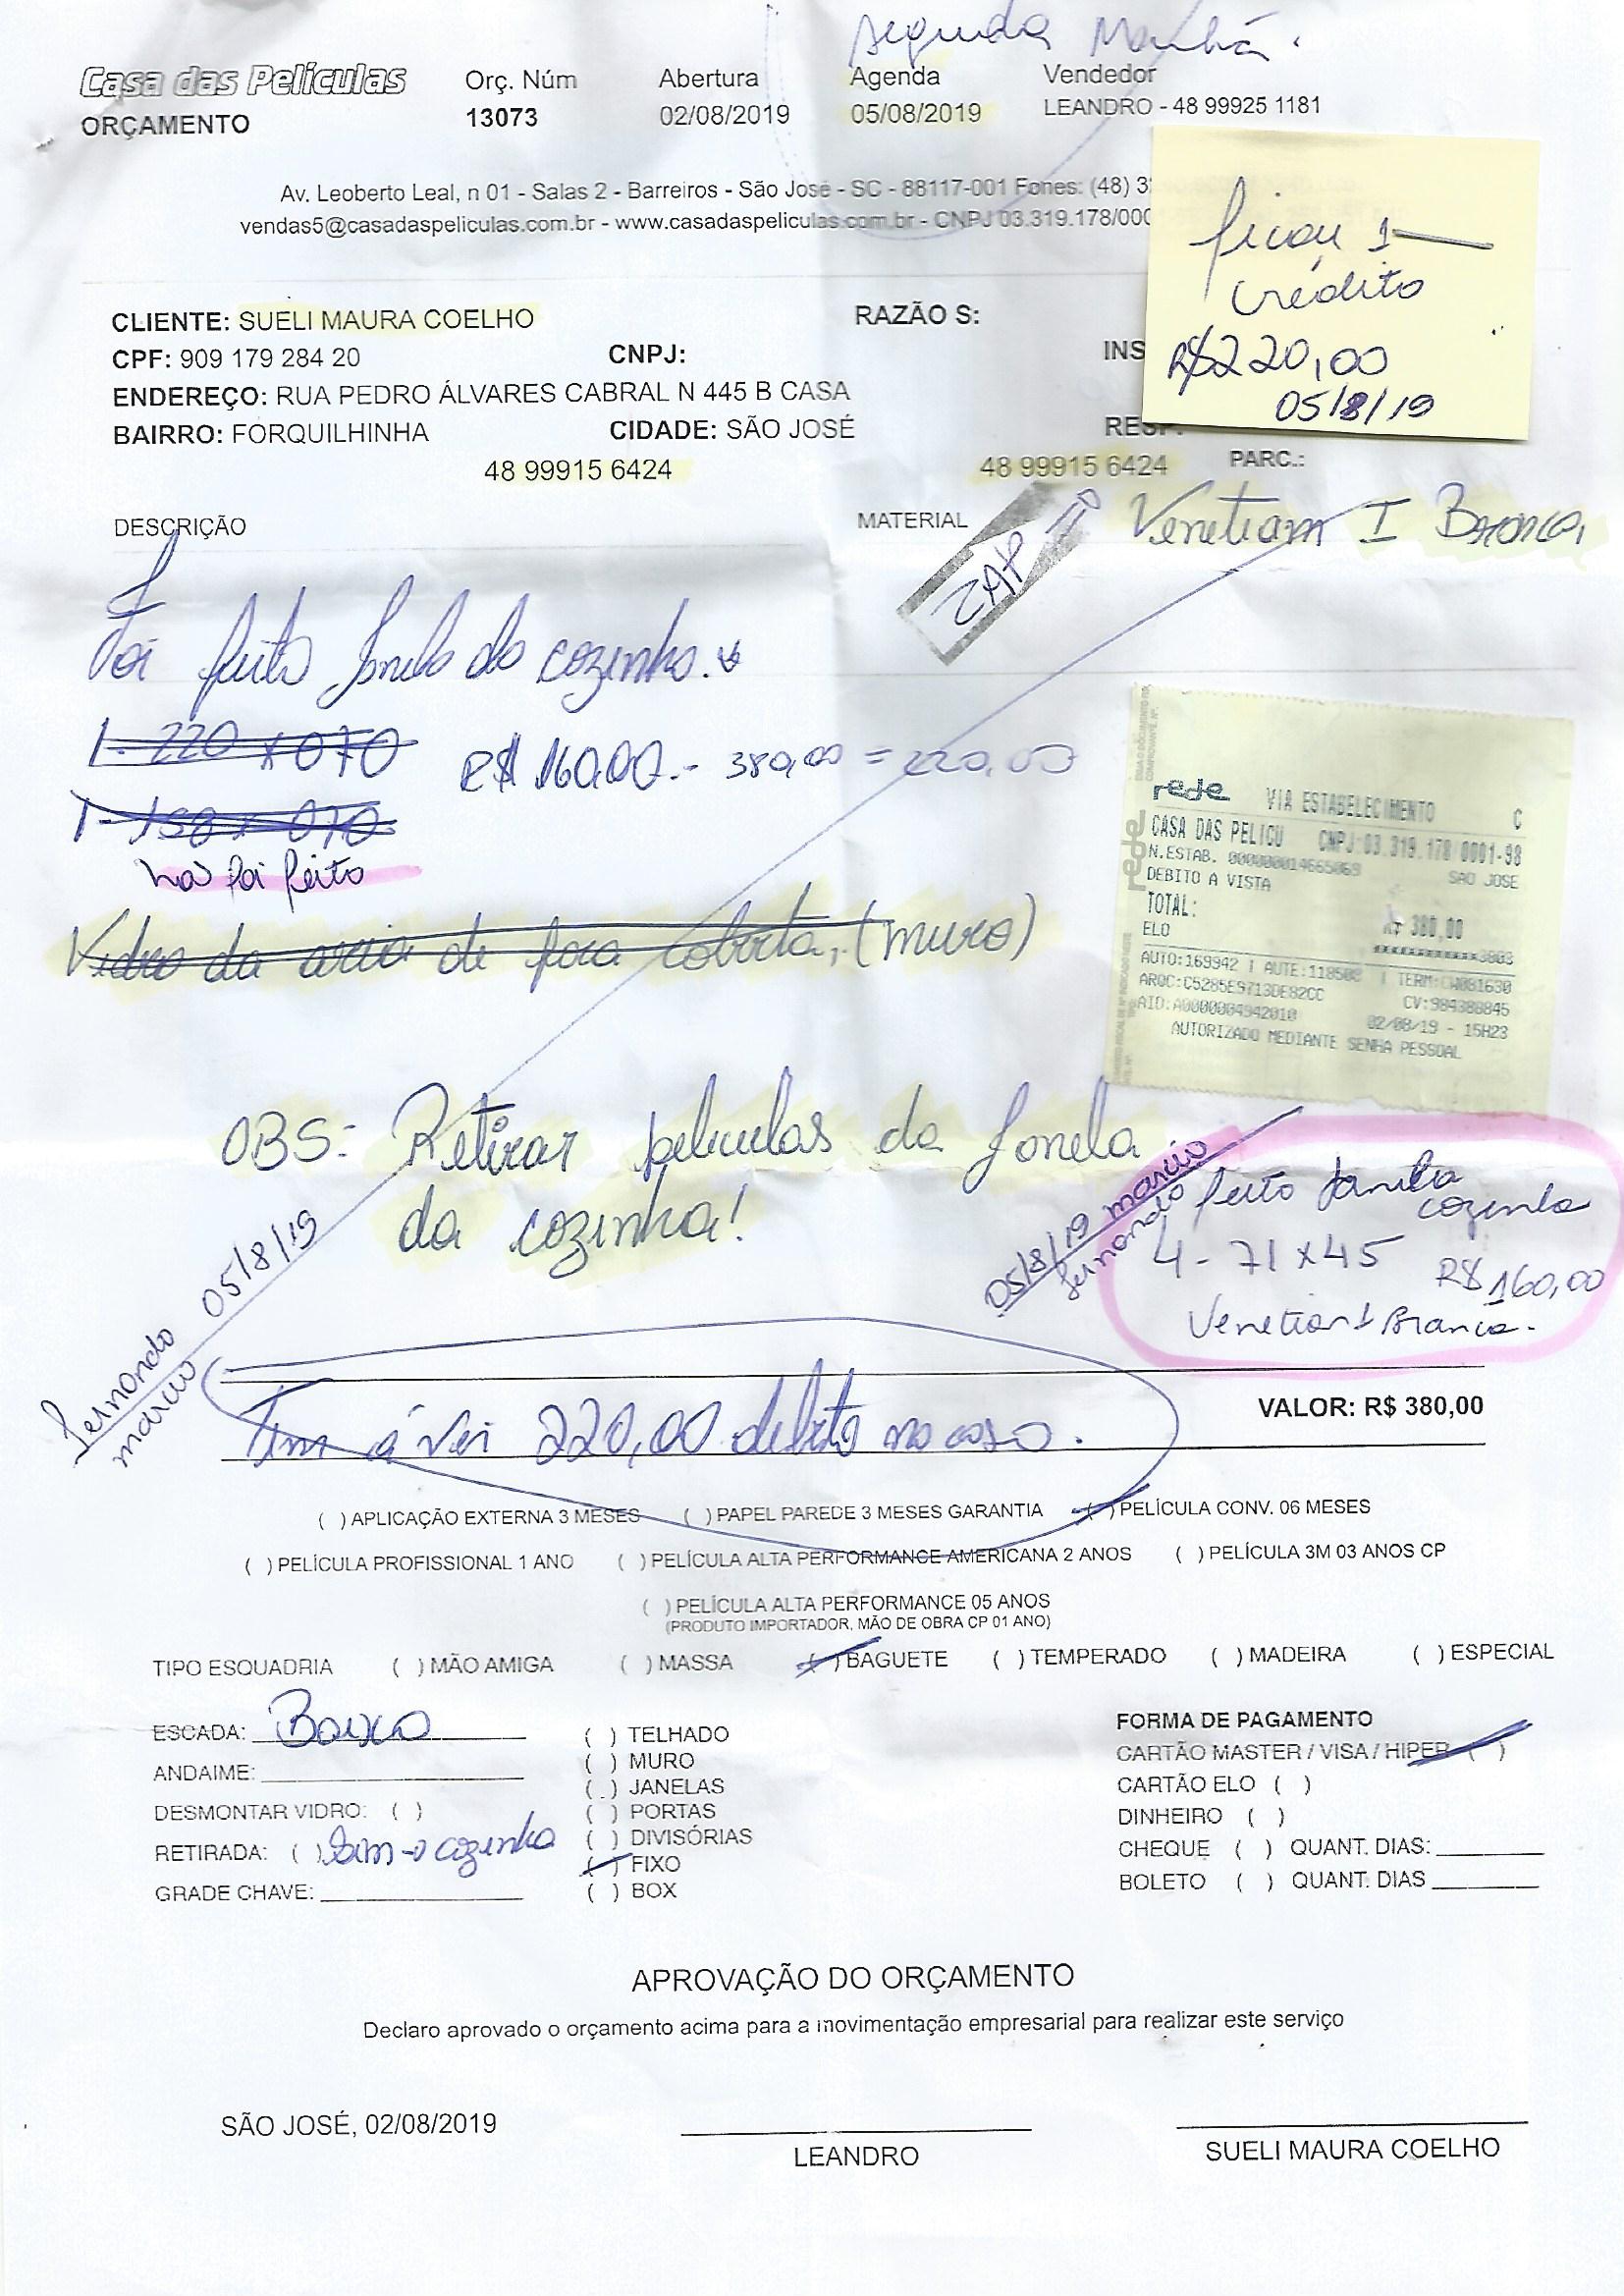 segunda Manhã.
Casa das Películas
ORÇAMENTO
Orç. Núm
13073
Abertura
02/08/2019
Agenda
05/08/2019
Vendedor
LEANDRO - 48 99925 1181
Av. Leoberto Leal, n 01 - Salas 2 - Barreiros - São José - SC - 88117-001 Fones: (48) 3
vendas5@casadaspeliculas.com.br - www.casadaspeliculas.com.br - CNPJ 03.319.178/000
ficou 1
crédito
R$220,00
05/8/19
CLIENTE: SUELI MAURA COELHO
RAZÃO S:
CPF: 909 179 284 20
CNPJ:
INS
ENDEREÇO: RUA PEDRO ÁLVARES CABRAL N 445 B CASA
BAIRRO: FORQUILHINHA
CIDADE: SÃO JOSÉ
RESP.
48 99915 6424
48 99915 6424
PARC.:
DESCRIÇÃO
MATERIAL
Venetiam I Branca
ZAP
Foi feito Janela da cozinha.
1-220 x 070
R$ 160,00.- 380,00 = 220,00
1-158 x 070
não foi feito
Vidro da area de fora coberta, (muro)
rede VIA ESTABELECIMENTO C
CASA DAS PELICU CNPJ:03.319.178 0001-98
N.ESTAB. 000000014665069 SAO JOSE
DEBITO A VISTA
TOTAL: R$ 380,00
ELO ************3803
AUTO:169942 | AUTE:118508 | TERM:CW081630
ARQC:C5285E9713DE82CC CV:984388845
AID:A0000004942010 02/08/19 - 15H23
AUTORIZADO MEDIANTE SENHA PESSOAL
OBS: Retirar películas da Janela
da cozinha!
05/8/19 marcio
fernando
feito Janela
cozinha
4 - 71 x 45 R$ 160,00
Venetian I Branca.
fernando 05/8/19
marcio
VALOR: R$ 380,00
Tem á ver 220,00 debito no caso.
( ) APLICAÇÃO EXTERNA 3 MESES ( ) PAPEL PAREDE 3 MESES GARANTIA ( ) PELÍCULA CONV. 06 MESES
( ) PELÍCULA PROFISSIONAL 1 ANO ( ) PELÍCULA ALTA PERFORMANCE AMERICANA 2 ANOS ( ) PELÍCULA 3M 03 ANOS CP
( ) PELÍCULA ALTA PERFORMANCE 05 ANOS
(PRODUTO IMPORTADOR, MÃO DE OBRA CP 01 ANO)
TIPO ESQUADRIA ( ) MÃO AMIGA ( ) MASSA ( ) BAGUETE ( ) TEMPERADO ( ) MADEIRA ( ) ESPECIAL
ESCADA: Baixa
ANDAIME:
DESMONTAR VIDRO: ( )
RETIRADA: ( ) Sim - cozinha
GRADE CHAVE:
( ) TELHADO
( ) MURO
( ) JANELAS
( ) PORTAS
( ) DIVISÓRIAS
( ) FIXO
( ) BOX
FORMA DE PAGAMENTO
CARTÃO MASTER / VISA / HIPER ( )
CARTÃO ELO ( )
DINHEIRO ( )
CHEQUE ( ) QUANT. DIAS:
BOLETO ( ) QUANT. DIAS
APROVAÇÃO DO ORÇAMENTO
Declaro aprovado o orçamento acima para a movimentação empresarial para realizar este serviço
SÃO JOSÉ, 02/08/2019
LEANDRO
SUELI MAURA COELHO